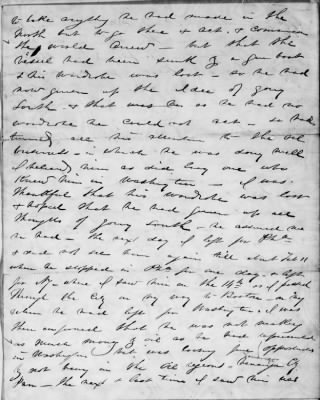 to take anything he had made in the
North but to go there & act, & communion
the world Dined — but that the
vessel had been sunk by a gun boat
& his wardrobe was lost — so he had
now given up the Idea of going
South — & that was by as he had no
wardrobe he could not act — so had
turned all his attention to the oil
business — in which he was doing well
I believed him as did every one who
knew him in Washington — I was
thankful that his wardrobe was lost
& hoped that he had given up all
thoughts of going South — he assured me
he had — the next day I left for Phila
& did not see him again till about Feb 11
when he stopped in Phila for one day, & left
for NY where I saw him on the 14th as I passed
through the City on my way to Boston — on
when he had left for Washington. I was
then surprised that he was not making
as much money by oil as he had represented
in Washington but was losing fine opportunities
by not being in the Oil regions —
the next & last time I saw him was